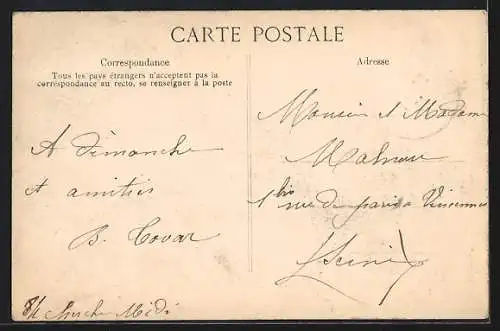 CARTE POSTALE
Correspondance
Tous les pays étrangers n'acceptent pas la
correspondance au recto, se renseigner à la poste
Adresse
A dimanche
et amitiés
B. Tovar
Cherche Midi
Monsieur et Madame
1 bis rue de Paris a Vincennes
(Seine)